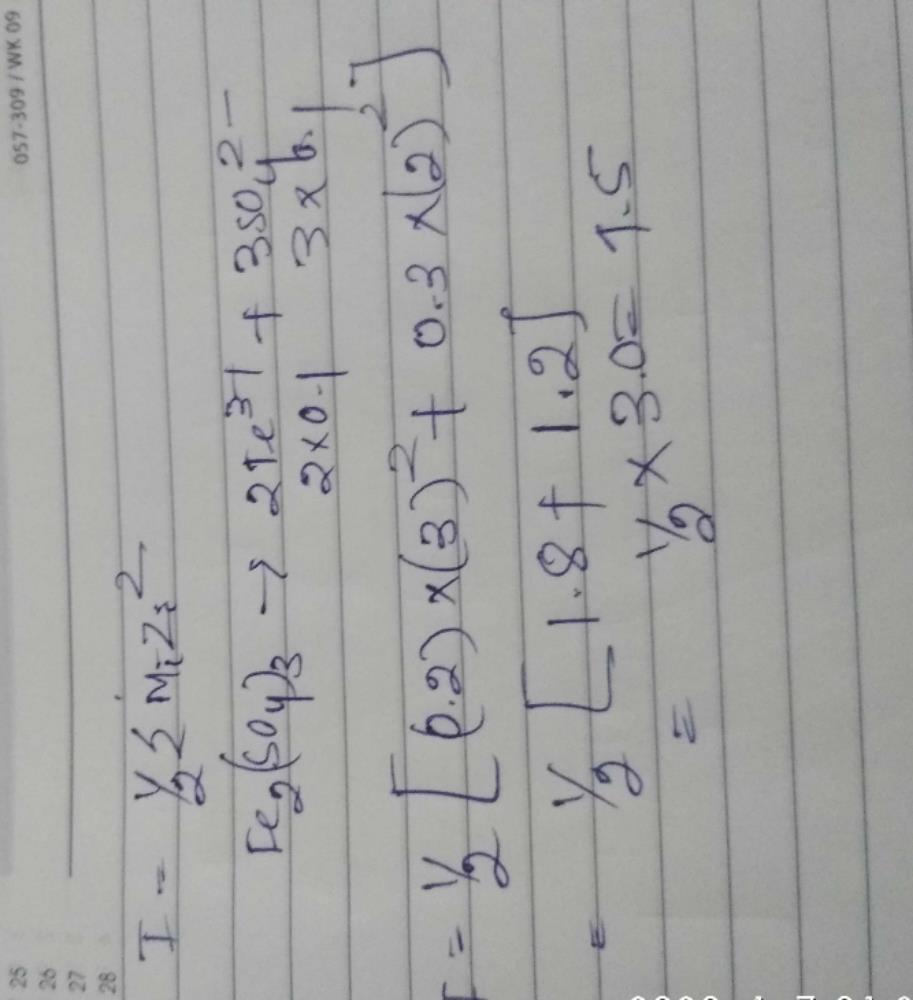 057-309 / WK 09
25
26
27
28
I = 1/2 Σ MiZi²
Fe2(SO4)3 → 2Fe³⁺ + 3SO4²⁻
2×0.1 3×0.1
I = 1/2 [(0.2)×(3)² + 0.3×(2)²]
= 1/2 [1.8 + 1.2]
= 1/2 × 3.0 = 1.5